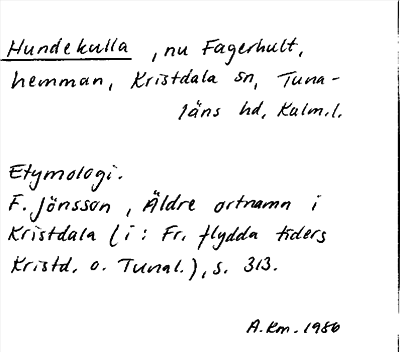 Hundekulla, nu Fagerhult,
hemman, Kristdala sn, Tuna-
läns hd, Kalm.l.
Etymologi.
F. Jönsson, Äldre ortnamn i
Kristdala (i: Fr. flydda tiders
Kristd. o. Tunal.), s. 313.
A.Km. 1986